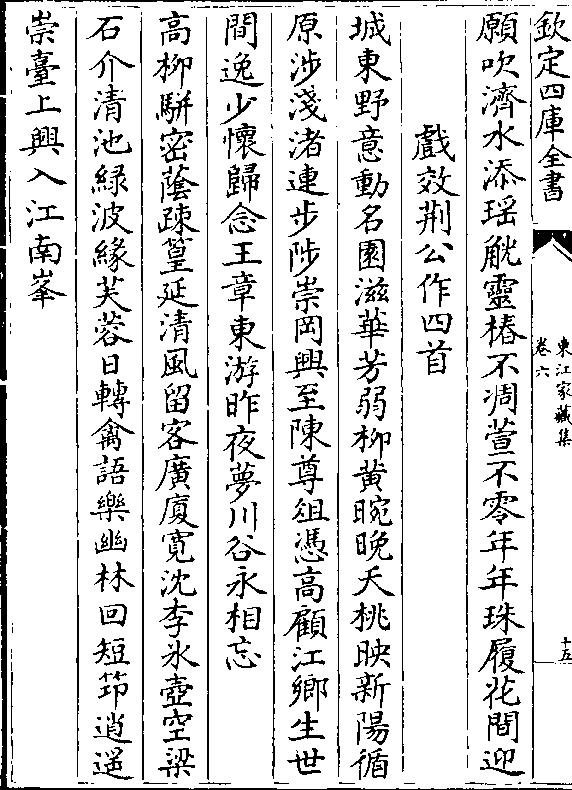 欽定四庫全書
東江家藏集
卷六
十五
願吹濟水添瑶觥靈椿不凋萱不零年年珠履花間迎
戲效荆公作四首
城東野意動名園滋華芳弱柳黄晼晚夭桃映新陽循
原涉淺渚連步陟崇岡興至陳尊俎憑高顧江鄉生世
間逸少懷歸念王章東游昨夜夢川谷永相忘
高柳駢密蔭疎篁延清風留客廣厦寛沈李氷壺空梁
石介清池緑波緣芙蓉日轉禽語樂幽林回短笻逍遥
崇臺上興入江南峯